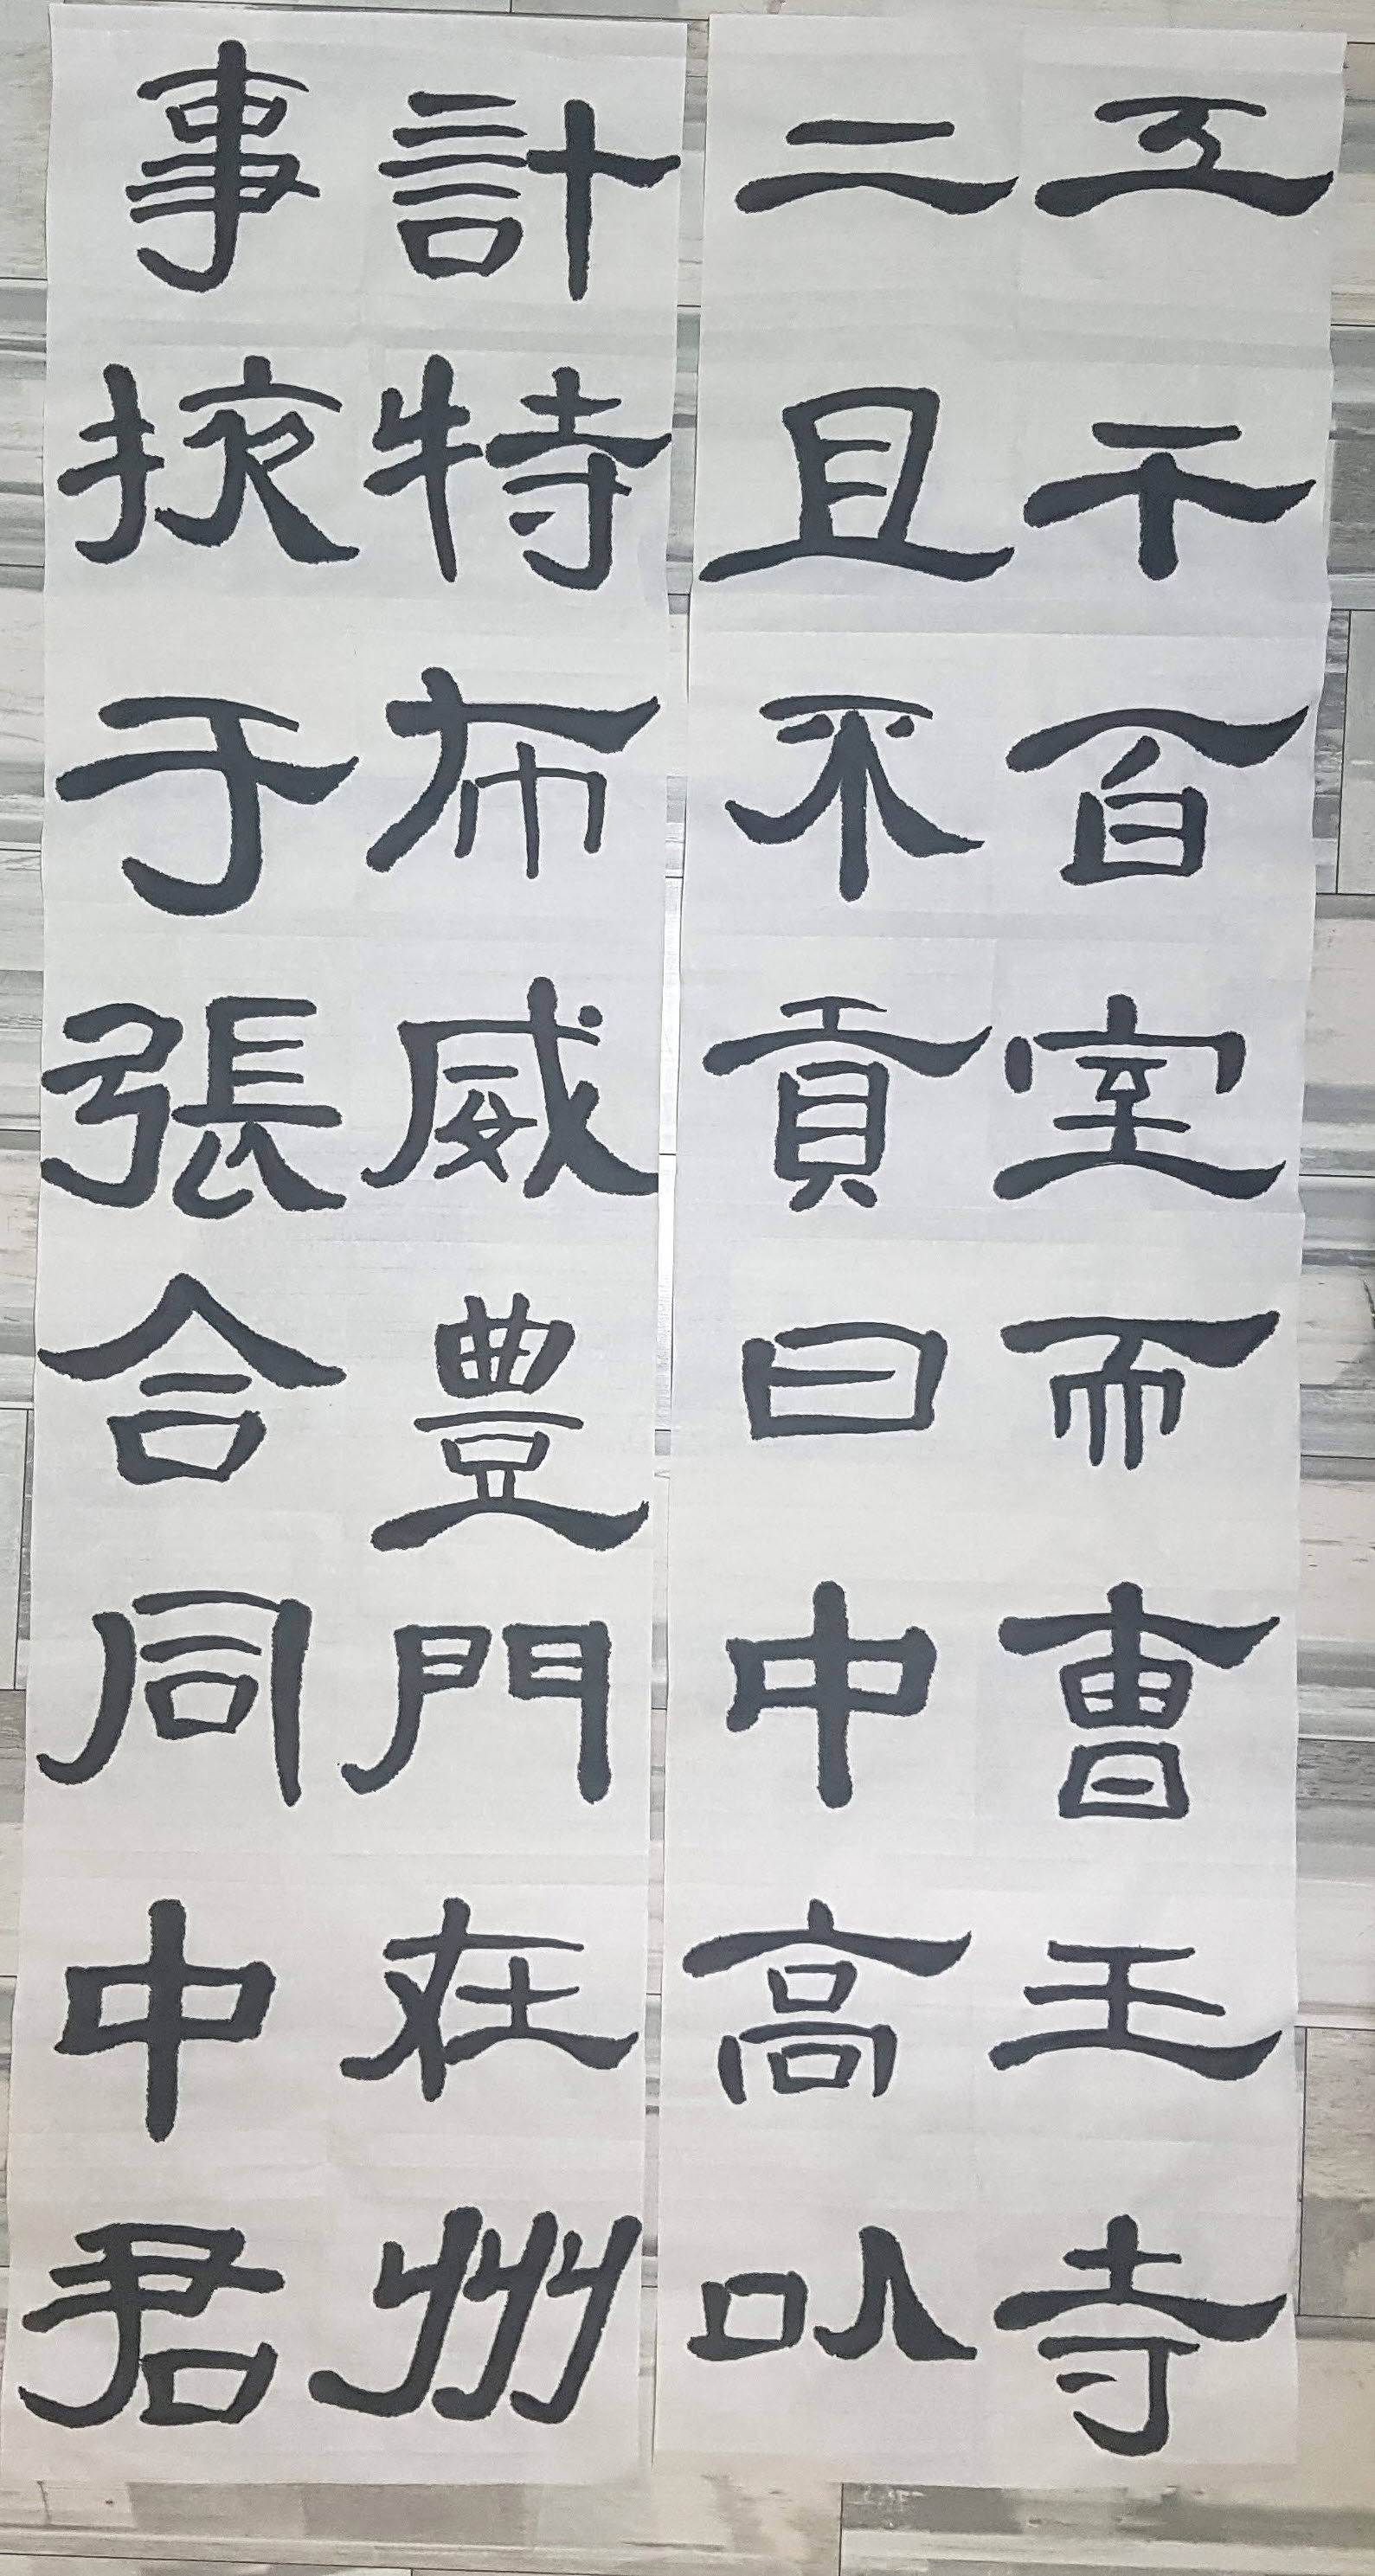 五干百室而曹王寺
二且不貢曰中高以
計特布威豊門在州
事掖于張合同中君